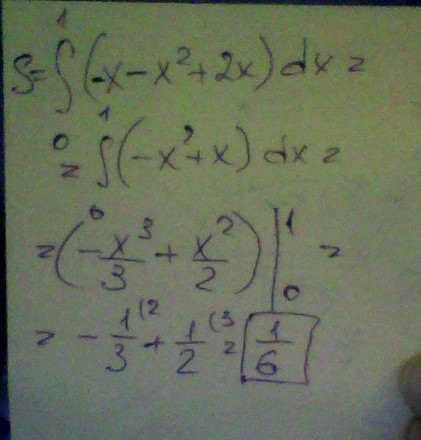 S = ∫₀¹ (-x - x² + 2x) dx =
= ∫₀¹ (-x² + x) dx =
= (-x³/3 + x²/2) |₀¹ =
= - 1/3 (2 + 1/2 (3 = 1/6